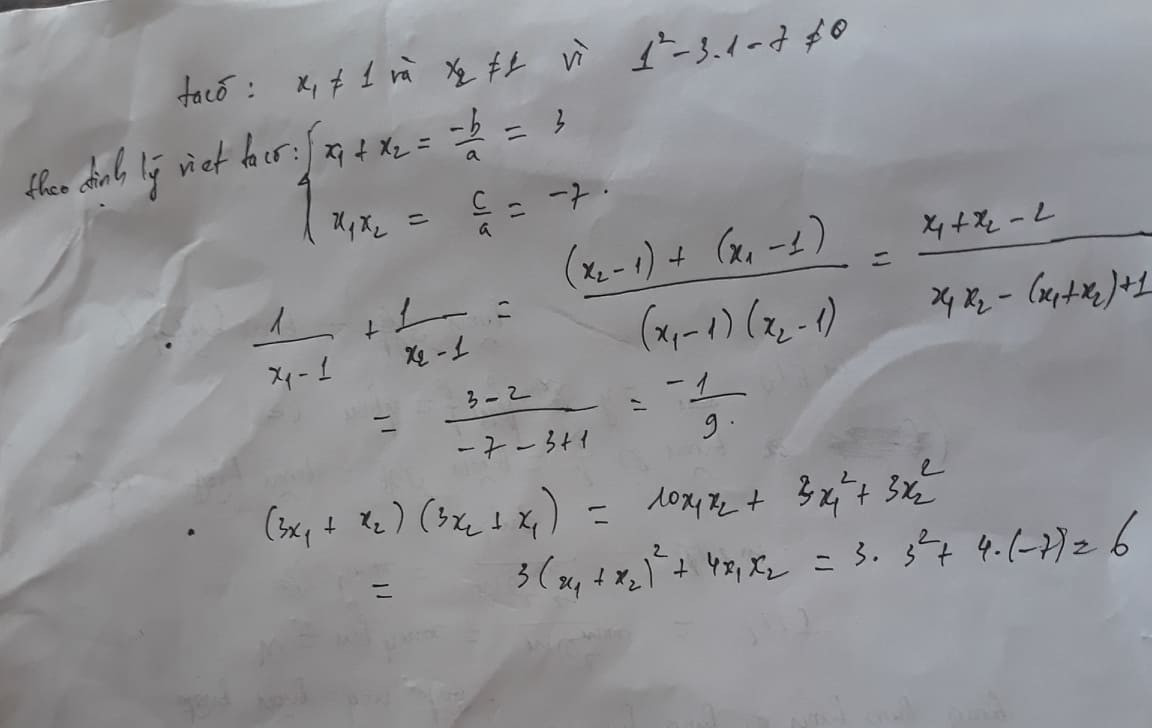 ta có : x₁ ≠ 1 và x₂ ≠ 1 vì 1² - 3.1 - 7 ≠ 0
theo định lý viet ta có : { x₁ + x₂ = -b/a = 3
x₁x₂ = c/a = -7.
. 1/(x₁ - 1) + 1/(x₂ - 1) = ((x₂ - 1) + (x₁ - 1))/((x₁ - 1)(x₂ - 1)) = (x₁ + x₂ - 2)/(x₁x₂ - (x₁ + x₂) + 1
= (3 - 2)/(-7 - 3 + 1) = -1/9.
. (3x₁ + x₂)(3x₂ + x₁) = 10x₁x₂ + 3x₁² + 3x₂²
= 3(x₁ + x₂)² + 4x₁x₂ = 3. 3² + 4.(-7) = 6